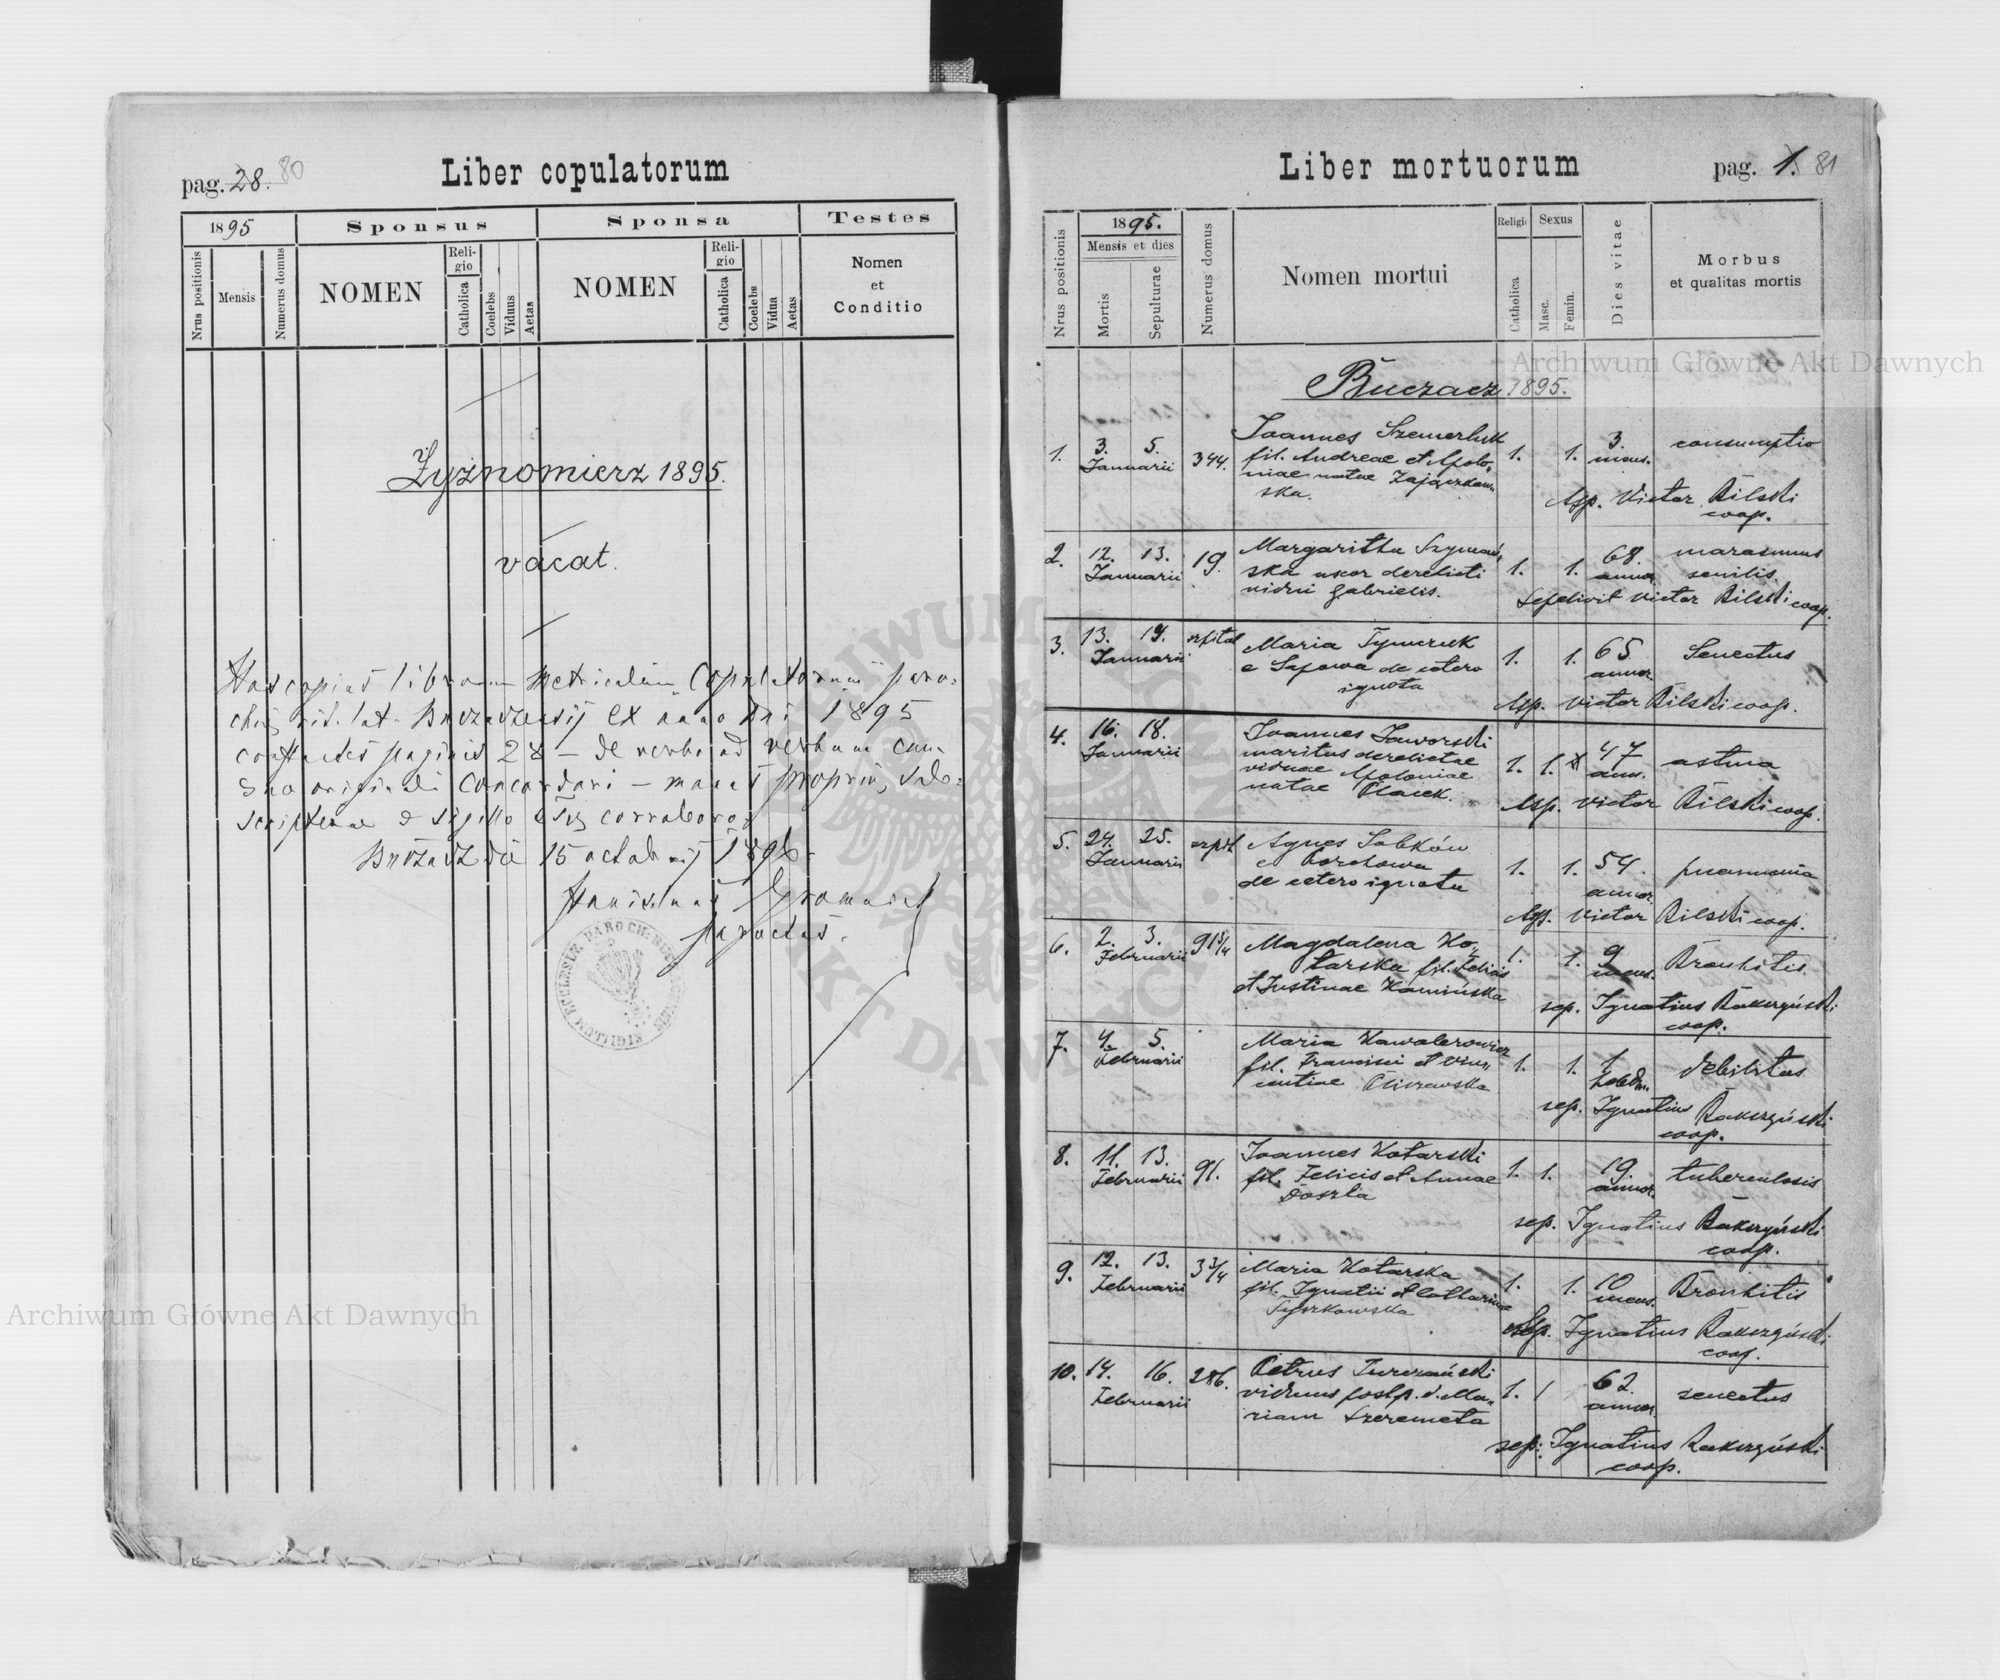 pag. 28. 80
Liber copulatorum
1895
Sponsus
Sponsa
Testes
Nrus positionis
Mensis
Numerus domus
NOMEN
Reli-
gio
Catholica
Coelebs
Viduus
Aetas
NOMEN
Reli-
gio
Catholica
Coelebs
Vidua
Aetas
Nomen
et
Conditio
Żyznomierz 1895.
vacat.
Has copias librorum Metricalium Copulatorum paro-
chiæ rit. lat. ex anno Dni 1895
paginis 28 – de verbo ad verbum cum
suo originali concordari – manus propriæ sub-
scriptione & sigillo corroboro
die 15 octobris 1896.
Stanislaus Gromnicki
parochus.
Liber mortuorum
pag. 1. 81
Nrus positionis
1895.
Mensis et dies
Mortis
Sepulturae
Numerus domus
Nomen mortui
Religio
Catholica
Sexus
Masc.
Femin.
Dies vitae
Morbus
et qualitas mortis
Buczacz 1895.
1. 3. 5. Januarii 344.
Joannes
fil. Andreae et Apolo-
niae natae Zajączkow-
ska.
1. 1. 3. mens. consumptio
Victor Bilski
coop.
2. 12. 13. Januarii 19.
Margaritha Szymań-
ska uxor derelicti
vidui Gabrielis.
1. 1. 68. annor. marasmus
senilis.
Sepelivit Victor Bilski coop.
3. 13. 14. Januarii szpital
Maria Tymczuk
e de cetero
ignota
1. 1. 65 annor. Senectus
Victor Bilski coop.
4. 16. 18. Januarii
Joannes Jaworski
maritus derelictae
viduae Apoloniae
natae
1. 1. 47 ann. astma
Victor Bilski coop.
5. 24. 25. Januarii szpit
Agnes Sobków
e
de cetero ignota
1. 1. 54. annor. pneumonia
Victor Bilski coop.
6. 2. 3. Februarii 91
Magdalena Ko-
tarska fil. Felicis
et Justinae Kamińska
1. 1. 9 mens. Bronhitis.
sep. Ignatius
coop.
7. 4. 5. Februarii
Maria Kawalerowicz
fil. Francisci et Vin-
centiae
1. 1. 1 debilitas
sep. Ignatius
coop.
8. 11. 13. Februarii 91.
Joannes Kotarski
fil. Felicis et Annae
1. 1. 19. annor. tuberculosis
sep. Ignatius
coop.
9. 12. 13. Februarii
Maria Kotarska
fil. Ignatii et Catharinae
Tyszkowska
1. 1. 10 mens. Bronhitis
sep. Ignatius
coop.
10. 14. 16. Februarii 286.
Petrus Turczański
viduus post p. d. Ma-
riam Szeremeta
1. 1 62. annor. senectus
sep. Ignatius
coop.
Archiwum Główne Akt Dawnych
Archiwum Główne Akt Dawnych
ARCHIWUM GŁÓWNE AKT DAWNYCH